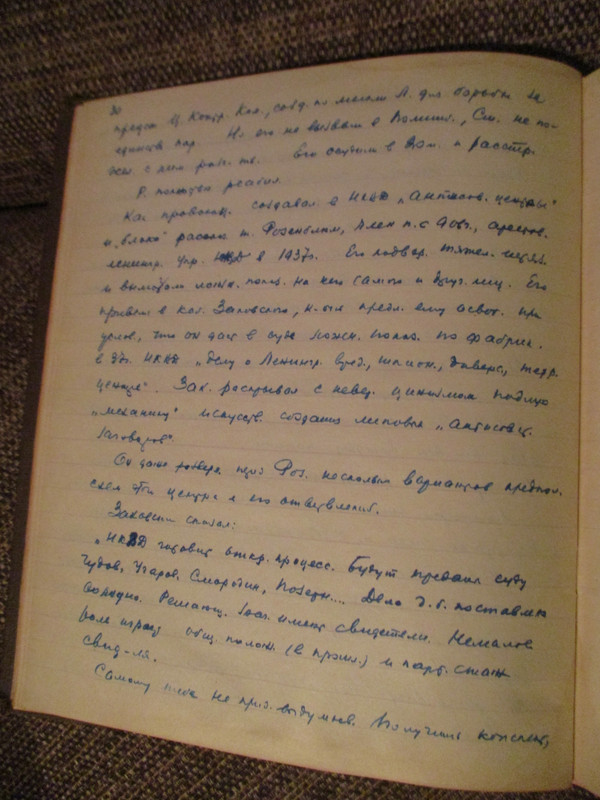 30
предст. Ц. Контр. Ком., созд. по мысли Л. для борьбы за
единство пар. Но его не вызвали в Политб., Ст. не по-
жел. с ним
Р. посмертно реабил.
Как провокац. создавал. в НКВД „антисов. центры"
и „блоки" расска. т. Розенблюм, член п. с 906г., арестов.
ленингр. Упр. НКВД в 1937г. Его подвер. тяжел. истяз.
и вымогали ложн. показ. на него самого и других лиц. Его
привели в каб. Заковского, к-рый предл. ему освоб. при
услов., что он даст в суде ложн. показ. по фабрик.
в 37г. НКВД „делу о Ленингр. вред., шпион., диверс., терр.
центре". Зак. раскрывал с невер. цинизмом подлую
„механику" искусств. создания липовых „антисовет.
заговоров".
Он даже развер. пред Роз. несколько вариантов предпол.
схем этого центра и его ответвлений.
Заковский сказал:
„НКВД готовит откр. процесс. Будут преданы суду
Чудов, Угаров, Смородин, Позерн.... Дело д. б. поставлено
солидно. Решающ. знач. имеют свидетели. Немалов.
роль играет общ. полож. (в прошл.) и парт. стаж
свид-ля.
Самому тебе не прид. выдумыв. Получишь конспект,